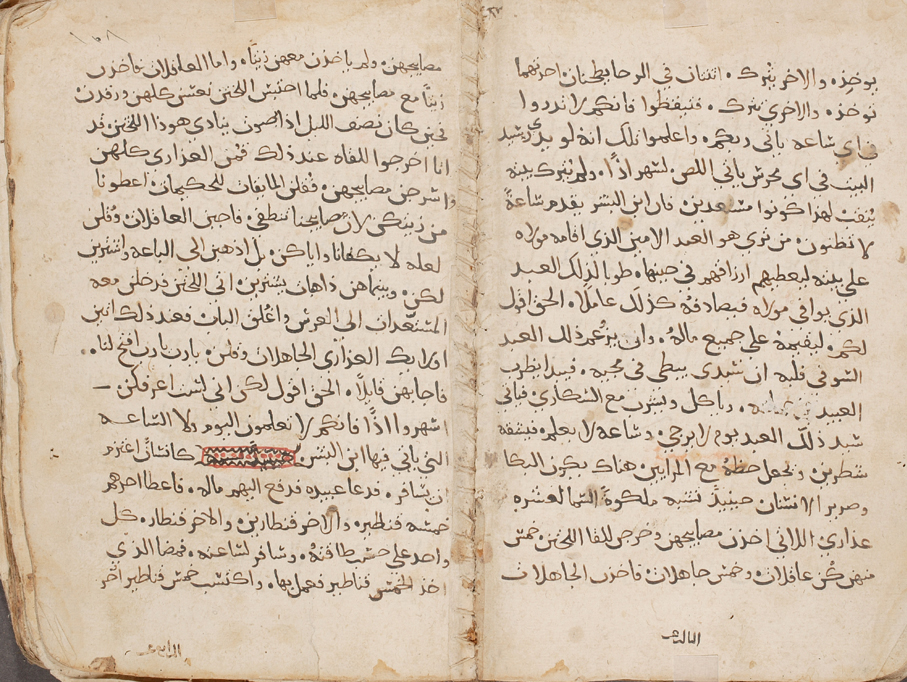 يوخذ. والاخر يترك. اثنتان في الرحا يطحنان احدتهما
توخذ. والاخرى تترك. فتيقظوا فانكم لا تدروا
في اي ساعه ياتي ربكم. واعلموا ذلك انه لو يدري رب
البيت في اي محرس ياتي اللص لسهر اذًا. ولم يترك بيته
ينقب لهذا كونوا مستعدين فان ابن البشر يقدم ساعةً
لا تظنون من تري هو العبد الامين الذي اقامه مولاه
على بيته ليعطيهم ارزاقهم في حينها. طوبا لذلك العبد
الذي يوافي مولاه فيصادفه كذلك عاملًا. الحق اقول
لكم. ليقيمه على جميع ماله. وان يزعم ذلك العبد
السو في قلبه ان سيدي يبطي في مجيه. فيبدا يضرب
العبيد. وياكل ويشرب مع السكارى فياتي
سيد ذلك العبد يوم لا يرجي. وساعه لا يعلم. فيشقه
شطرين. ويجعل حظه مع المرايين. هناك يكون البكا
وصرير الاسنان حينيذٍ تشبه ملكوة السما لعشره
عذاري. اللاتي اخذن مصابيحهن وخرجن للقا الختن. خمس
منهن كن عاقلات. وخمس جاهلات. فاخذن الجاهلات
الثالثه
١٥٨
مصابيحهن. ولم ياخذن معهن زيتًا. واما العاقلات فاخذن
زيتًا مع مصابيحهن. فلما احتبس الختن نعسن كلهن ورقدن
فحين كان نصف الليل اذا بصوت ينادي هوذا الختن قد
اتا اخرجوا للقاه عند ذلك قمن العذارى كلهن
واسرجن مصابيحهن. وقلن المايقات للحكيمات اعطونا
من زيتكن لان مصابيحنا تنطفي. فاجبن العاقلات وقلن
لعله لا يكفانا واياكن. بل اذهبن الى الباعه واشترين
لكن. وبينما هن ذاهبات يشترين. اتى الختن فدخلن معه
المستعدات الي العرس واغلق الباب. فعند ذلك اتين
اولايك العذاري الجاهلات وقلن. يارب يارب افتح لنا.
فاجابهن قايلًا. الحق اقول لكن اني لست اعرفكن
اسهروا اذًا فانكم لا تعلمون اليوم ولا الساعه
التي ياتي فيها ابن البشر. كانسانًا اعتزم
ان يسافر. فدعا عبيده فدفع اليهم ماله. فاعطا احدهم
خمسه قناطير. والاخر قنطارين. والاخر قنطار. كل
واحد على حسب طاقته. وسافر لساعته. فمضا الذي
اخذ الخمس قناطير فعمل بها. واكتسب خمس قناطير اخر